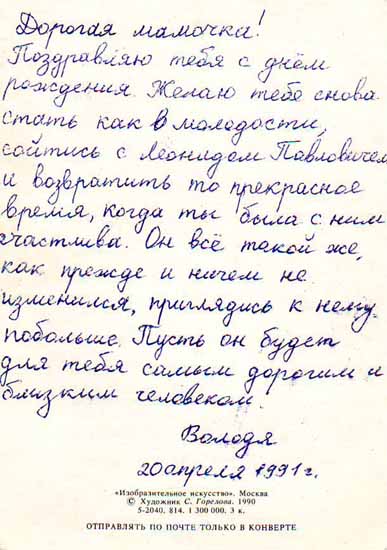 Дорогая мамочка!
Поздравляю тебя с днём
рождения. Желаю тебе снова
стать как в молодости,
сойтись с Леонидом Павловичем
и возвратить то прекрасное
время, когда ты была с ним
счастлива. Он всё такой же,
как прежде и ничем не
изменился, приглядись к нему
побольше. Пусть он будет
для тебя самым дорогим и
близким человеком.
Володя
20 апреля 1991 г.
«Изобразительное искусство». Москва
© Художник С. Горелова. 1990
5-2040. 814. 1 300 000. 3 к.
ОТПРАВЛЯТЬ ПО ПОЧТЕ ТОЛЬКО В КОНВЕРТЕ